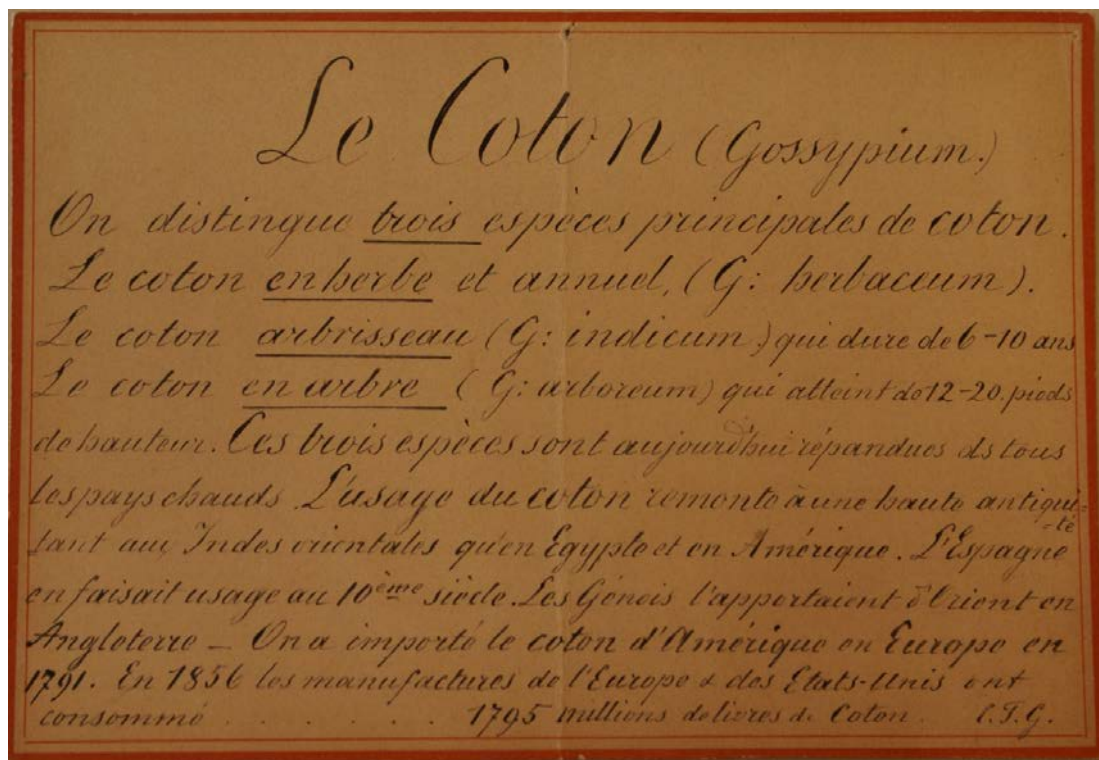 Le Coton (Gossypium.)
On distingue trois espèces principales de coton.
Le coton en herbe et annuel, (G: herbaceum).
Le coton arbrisseau (G: indicum) qui dure de 6-10 ans
Le coton en arbre (G: arboreum) qui atteint de 12-20. pieds
de hauteur. Ces trois espèces sont aujourd'hui répandues ds tous
les pays chauds. L'usage du coton remonte à une haute antiqui=
=té
tant aux Indes orientales qu'en Egypte et en Amérique. L'Espagne
en faisait usage au 10ème siècle. Les Génois l'apportaient d'Orient en
Angleterre – On a importé le coton d'Amérique en Europe en
1791. En 1856 les manufactures de l'Europe & des Etats-Unis ont
consommé . . . . . . . 1795 millions de livres de Coton. C.F.G.